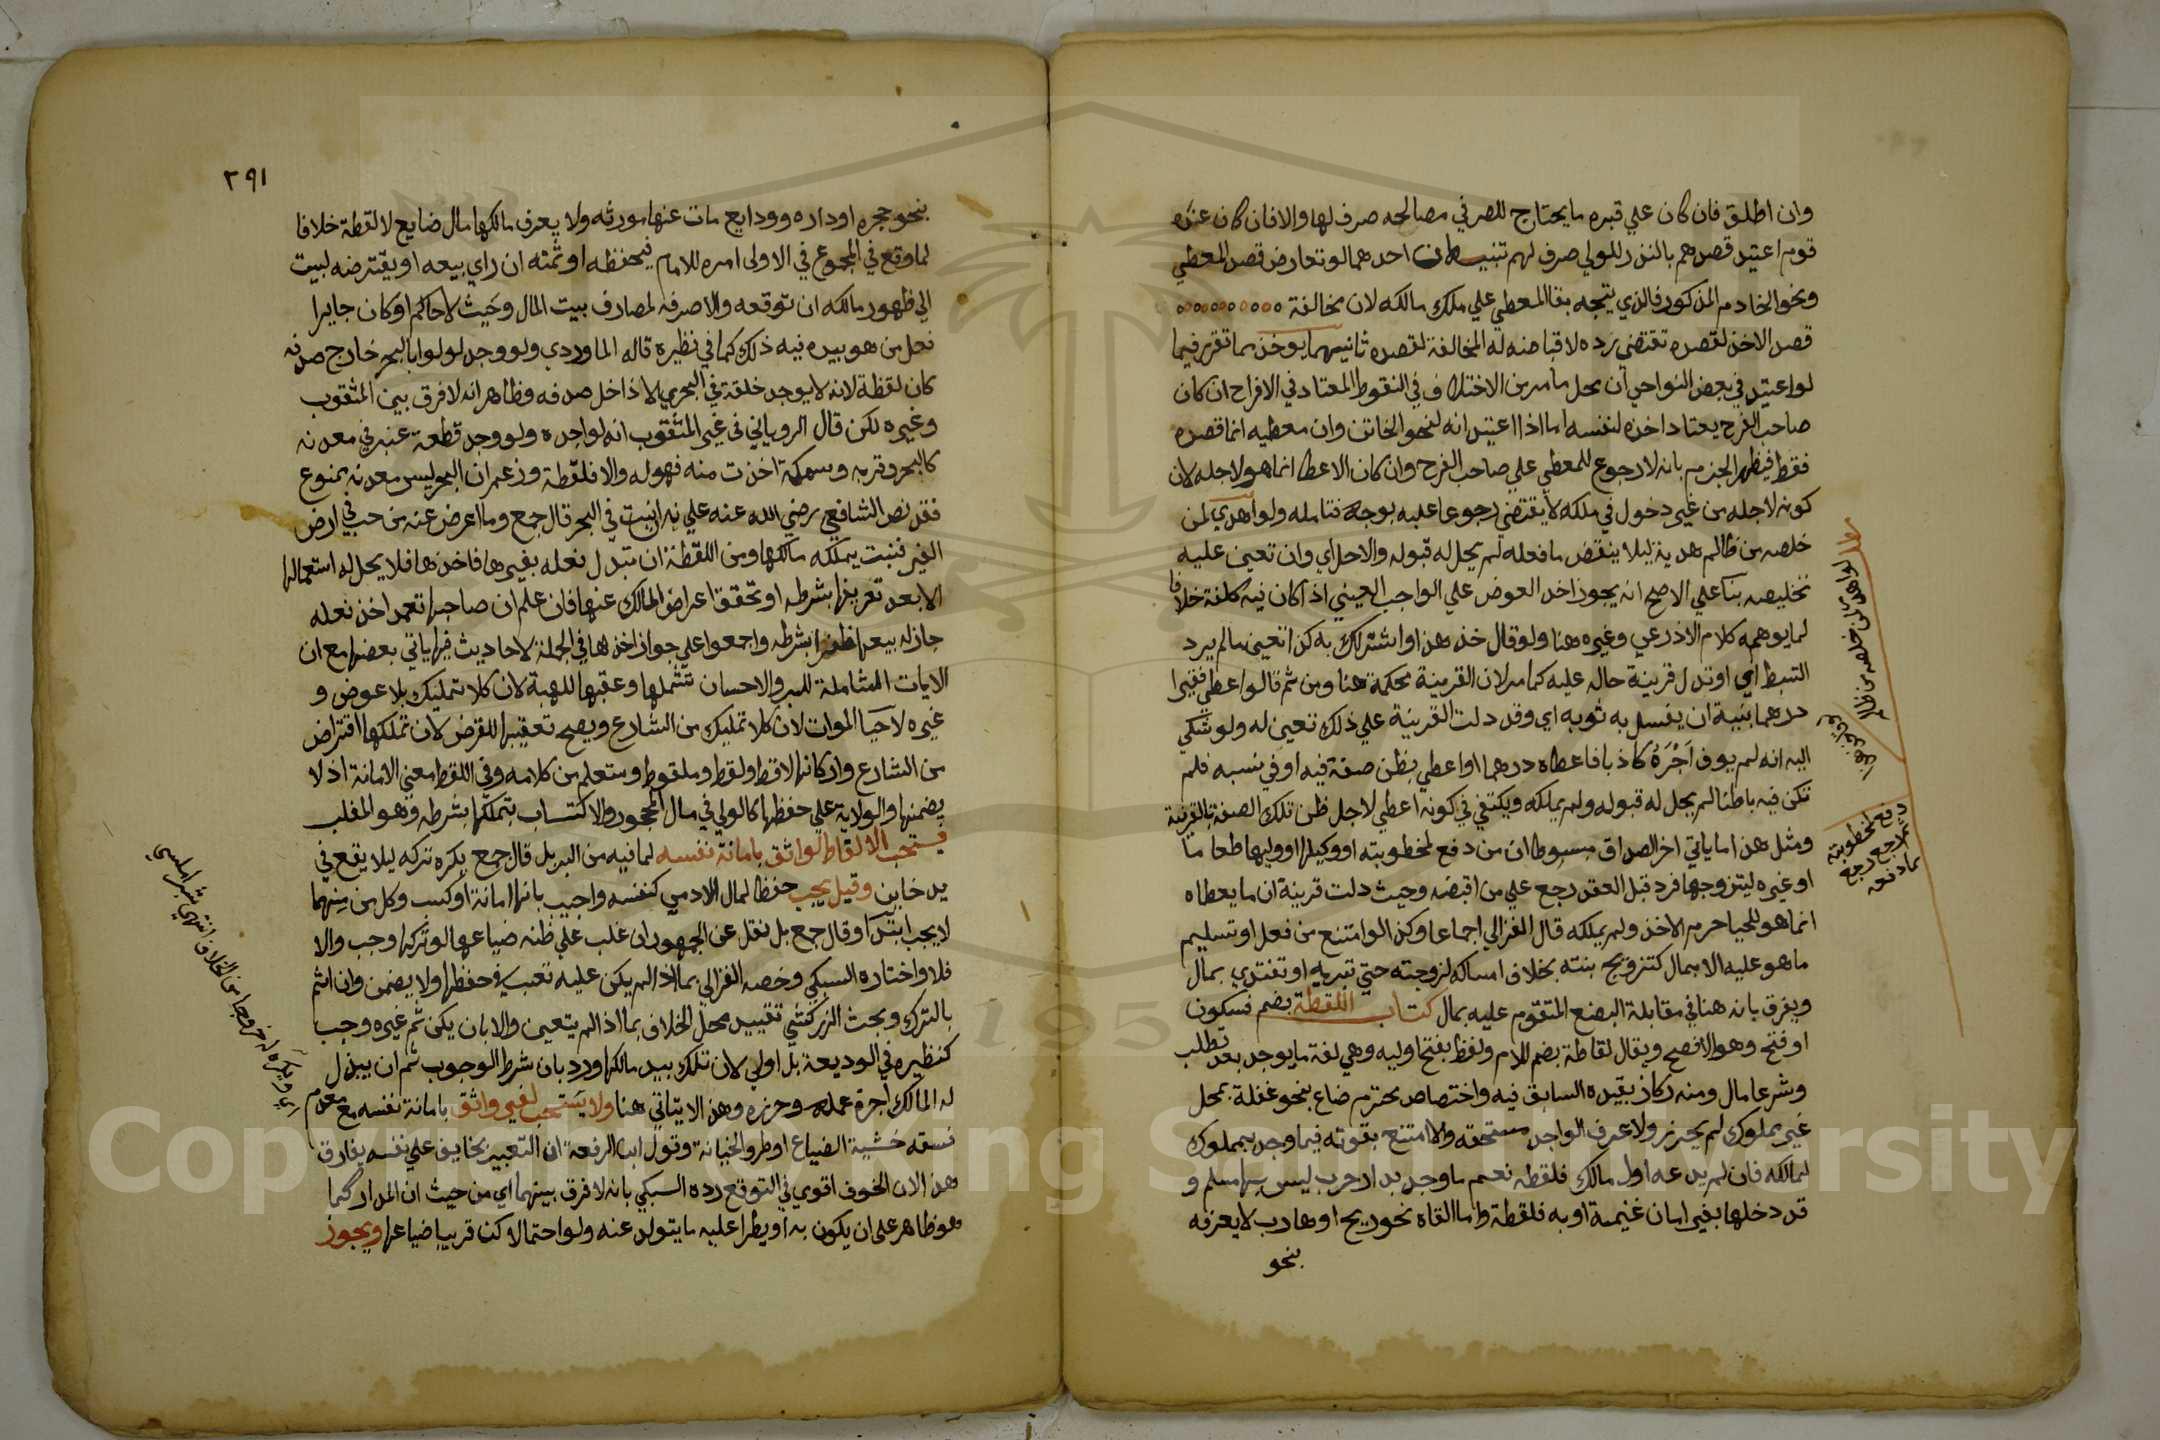 وان اطلق فان كان علي قبره ما يحتاج للصرف في مصالحه صرف لها والا فان كان عنده
قوم اعتيد قصدهم بالنذر للولي صرف لهم تنبيه طان احدهما لو تعارض قصد المعطي
ونحو الخادم المذكور فالذي يتجه بقا المعطي علي ملك مالكه لان مخالفة
قصد الاخذ لقصده تقتضي رده لاقباضه له المخالفة لقصده ثانيهما يوخذ مما تقرر فيما
لو اعتيد في بعض النواحي ان محل ما مر من الاختلاف في النقوط المعتاد في الافراح ان كان
صاحب الفرح يعتاد اخذه لنفسه اما اذا اعتيد انه لنحو الخاتن وان معطيه انما قصده
فقط فيظهر الجزم بانه لا رجوع للمعطي علي صاحب الفرح وان كان الاعطا انما هو لاجله لان
كونه لاجله من غير دخول في ملكه لا يقتضي رجوعا عليه بوجه فتامله ولو اهدي لمن
خلصه من ظالم هدية ليلا ينقض ما فعله لم يحل له قبوله والا حل اي وان تعين عليه
تخليصه بنا علي الاصح انه يجوز اخذ العوض علي الواجب العيني اذا كان فيه كلفة خلافا
لما يوهمه كلام الاذرعي وغيره هنا ولو قال خذ هذا واشتر لك به كذا تعين ما لم يرد
التبسط اي او تدل قرينة حاله عليه كما مر لان القرينة محكمة هنا ومن ثم قالوا لو اعطي فقيرا
درهما بنية ان يغسل به ثوبه اي وقد دلت القرينة علي ذلك تعين له ولو شكي
اليه انه لم يوف اجره كاذبا فاعطاه درهما او اعطي بظن صفة فيه او في نسبه فلم
تكن فيه باطنا لم يحل له قبوله ولم يملكه ويكتفي في كونه اعطي لاجل ظن تلك الصفة بالقرينة
ومثل هذا ما ياتي اخر الصداق مبسوطا ان من دفع لمخطوبته او وكيلها او وليها طعاما
او غيره ليتزوجها فرد قبل العقد رجع علي من اقبضه وحيث دلت قرينة ان ما يعطاه
انما هو للحيا حرم الاخذ ولم يملكه قال الغزالي اجماعا وكذا لو امتنع من فعل او تسليم
ما هو عليه الا بمال كتزويج بنته بخلاف امساكه لزوجته حتي تبريه او تفتدي بمال
ويفرق بانه هنا في مقابلة البضع المتقوم عليه بمال كتاب اللقطة بضم فسكون
او فتح وهو الافصح ويقال لقاطة بضم اللام ولقط بفتح اوليه وهي لغة ما يوجد بعد تطلب
وشرعا مال ومنه ركاز بقيده السابق فيه واختصاص محترم ضاع بنحو غفلة بمحل
غير مملوك لم يحرز ولا عرف الواجد مستحقه ولا امتنع بقوته فيما وجد بمملوك
لمالكه فان لم يدعه اول مالك فلقطه نعم ما وجد بدار حرب ليس بها مسلم و
قد دخلها بغير امان غنيمة او به فلقطة واما القاه نحو ريح او هارب لا يعرفه
بنحو
دفع لمخطوبته
٣٩١
بنحو حجره او داره وودايع مات عنها مورثه ولا يعرف مالكها مال ضايع لا لقطة خلافا
لما وقع في المجموع في الاولى امره للامام فيحفظه او ثمنه ان راي بيعه او يقترضه لبيت
الي ظهور مالكه ان توقعه والا صرفه لمصارف بيت المال وحيث لا حاكم او كان جايرا
فعل من هو بيده فيه ذلك كما في نظيره قاله الماوردي ولو وجد لولوا بالبحر خارج صدفه
كان لقطة لانه لا يوجد خلقة في البحر الا داخل صدفه وظاهره انه لا فرق بين المثقوب
وغيره لكن قال الروياني في غير المثقوب انه لواجده ولو وجد قطعة عنبر في معدنه
كالبحر وقربه وسمكة اخذت منه فهو له والا فلقطة وزعم ان البحر ليس معدنه ممنوع
فقد نص الشافعي رضي الله عنه علي انه ينبت في البحر قال جمع وما اعرض عنه من حب في ارض
الغير فنبت يملكه مالكها ومن اللقطة ان تبدل نعله بغيرها فاخذها فلا يحل له استعمالها
الا بعد تعريفها بشرطه او تحقق اعراض المالك عنها فان علم ان صاحبها تعمد اخذ نعله
جاز له بيعها ظفرا بشرطه واجمعوا علي جواز اخذها في الجملة لاحاديث فيها ياتي بعضها مع ان
الايات الشاملة للبر والاحسان تشملها وعقبها للهبة لان كلا تمليك بلا عوض و
غيره لاحيا الموات لان كلا تمليك من الشارع ويصح تعقيبها للقرض لان تملكها اقتراض
من الشارع واركانها لاقط ولقط وملقوط وستعلم من كلامه وفي اللقط معني الامانة اذ لا
يضمنها والولاية علي حفظها كالولي في مال المحجور والاكتساب بتملكها بشرطه وهو المغلب
يستحب الالتقاط لواثق بامانة نفسه لما فيه من البر بل قال جمع يكره تركه ليلا يقع في
يد خاين وقيل يجب حفظا لمال الادمي كنفسه واجيب بانها امانة او كسب وكل من منهما
لا يجب ابتداء وقال جمع بل نقل عن الجمهور ان غلب علي ظنه ضياعها لو تركها وجب والا
فلا واختاره السبكي وخصه الغزالي بما اذا لم يكن عليه تعب في حفظها ولا يضمن وان اثم
بالترك وبحث الزركشي تقييد محل الخلاف بما اذا لم يتعين والا بان يكن ثم غيره وجب
كنظيره في الوديعة بل اولي لان تلك بيد مالكها ورد بان شرط الوجوب ثم ان يبذل
له المالك اجرة عمله وحرزه وهذا لا يتاتي هنا ولا يستحب لغير واثق بامانة نفسه مع عدم
فسقه خشية الضياع او طرو الخيانة وقول ابن الرفعة ان التعبير بخايف علي نفسه يفارق
هذا لان الخوف اقوي في التوقع رده السبكي بانه لا فرق بينهما اي من حيث ان المدار كما
هو ظاهر على ان يكون به او يطرا عليه ما يتولد عنه ولو احتمالا كذا قريبا ضياعها ويجوز